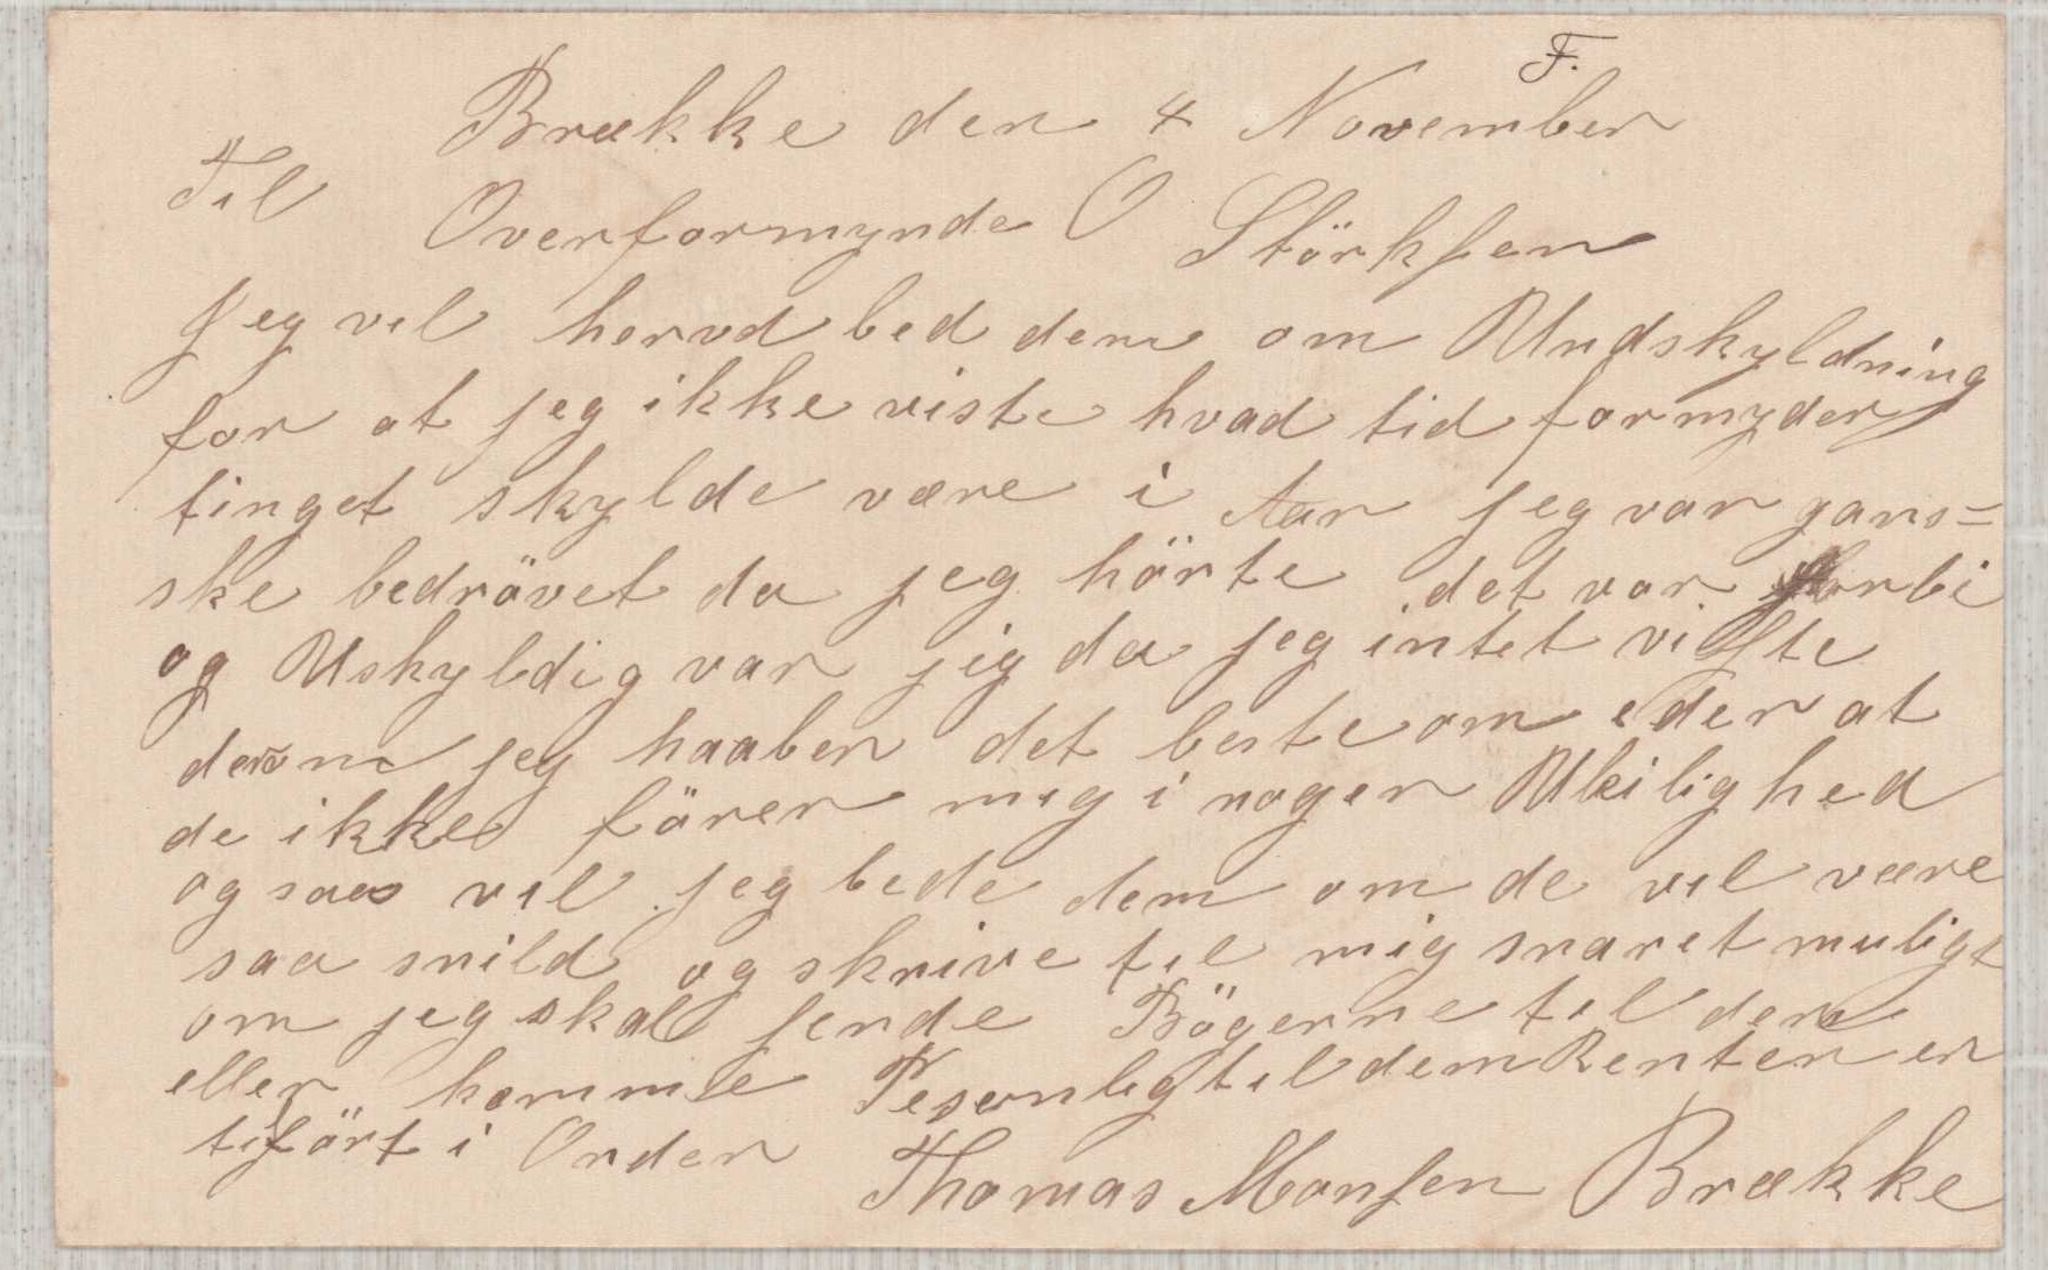 F.
Brække den 4 November
Til Overformynde O Störksen
Jeg vil hervd bed dem om Undskyldning
for at jeg ikke viste hvad tid formyder
tinget skylde være i Aar jeg var gans=
ske bedrövet da jeg hörte det var forbi
og Uskyldig var jeg da jeg intet viste
derom jeg haaber det beste om eder at
de ikke förer mig i nogen Ukilighed
og saa vil jeg bede dem om de vil være
saa snild og skrive til mig snaret muligt
om jeg skal sende Bögerne til dem
eller komme Pesonlig til dem Renten er
tilfört i Orden Thomas Monsen Brække